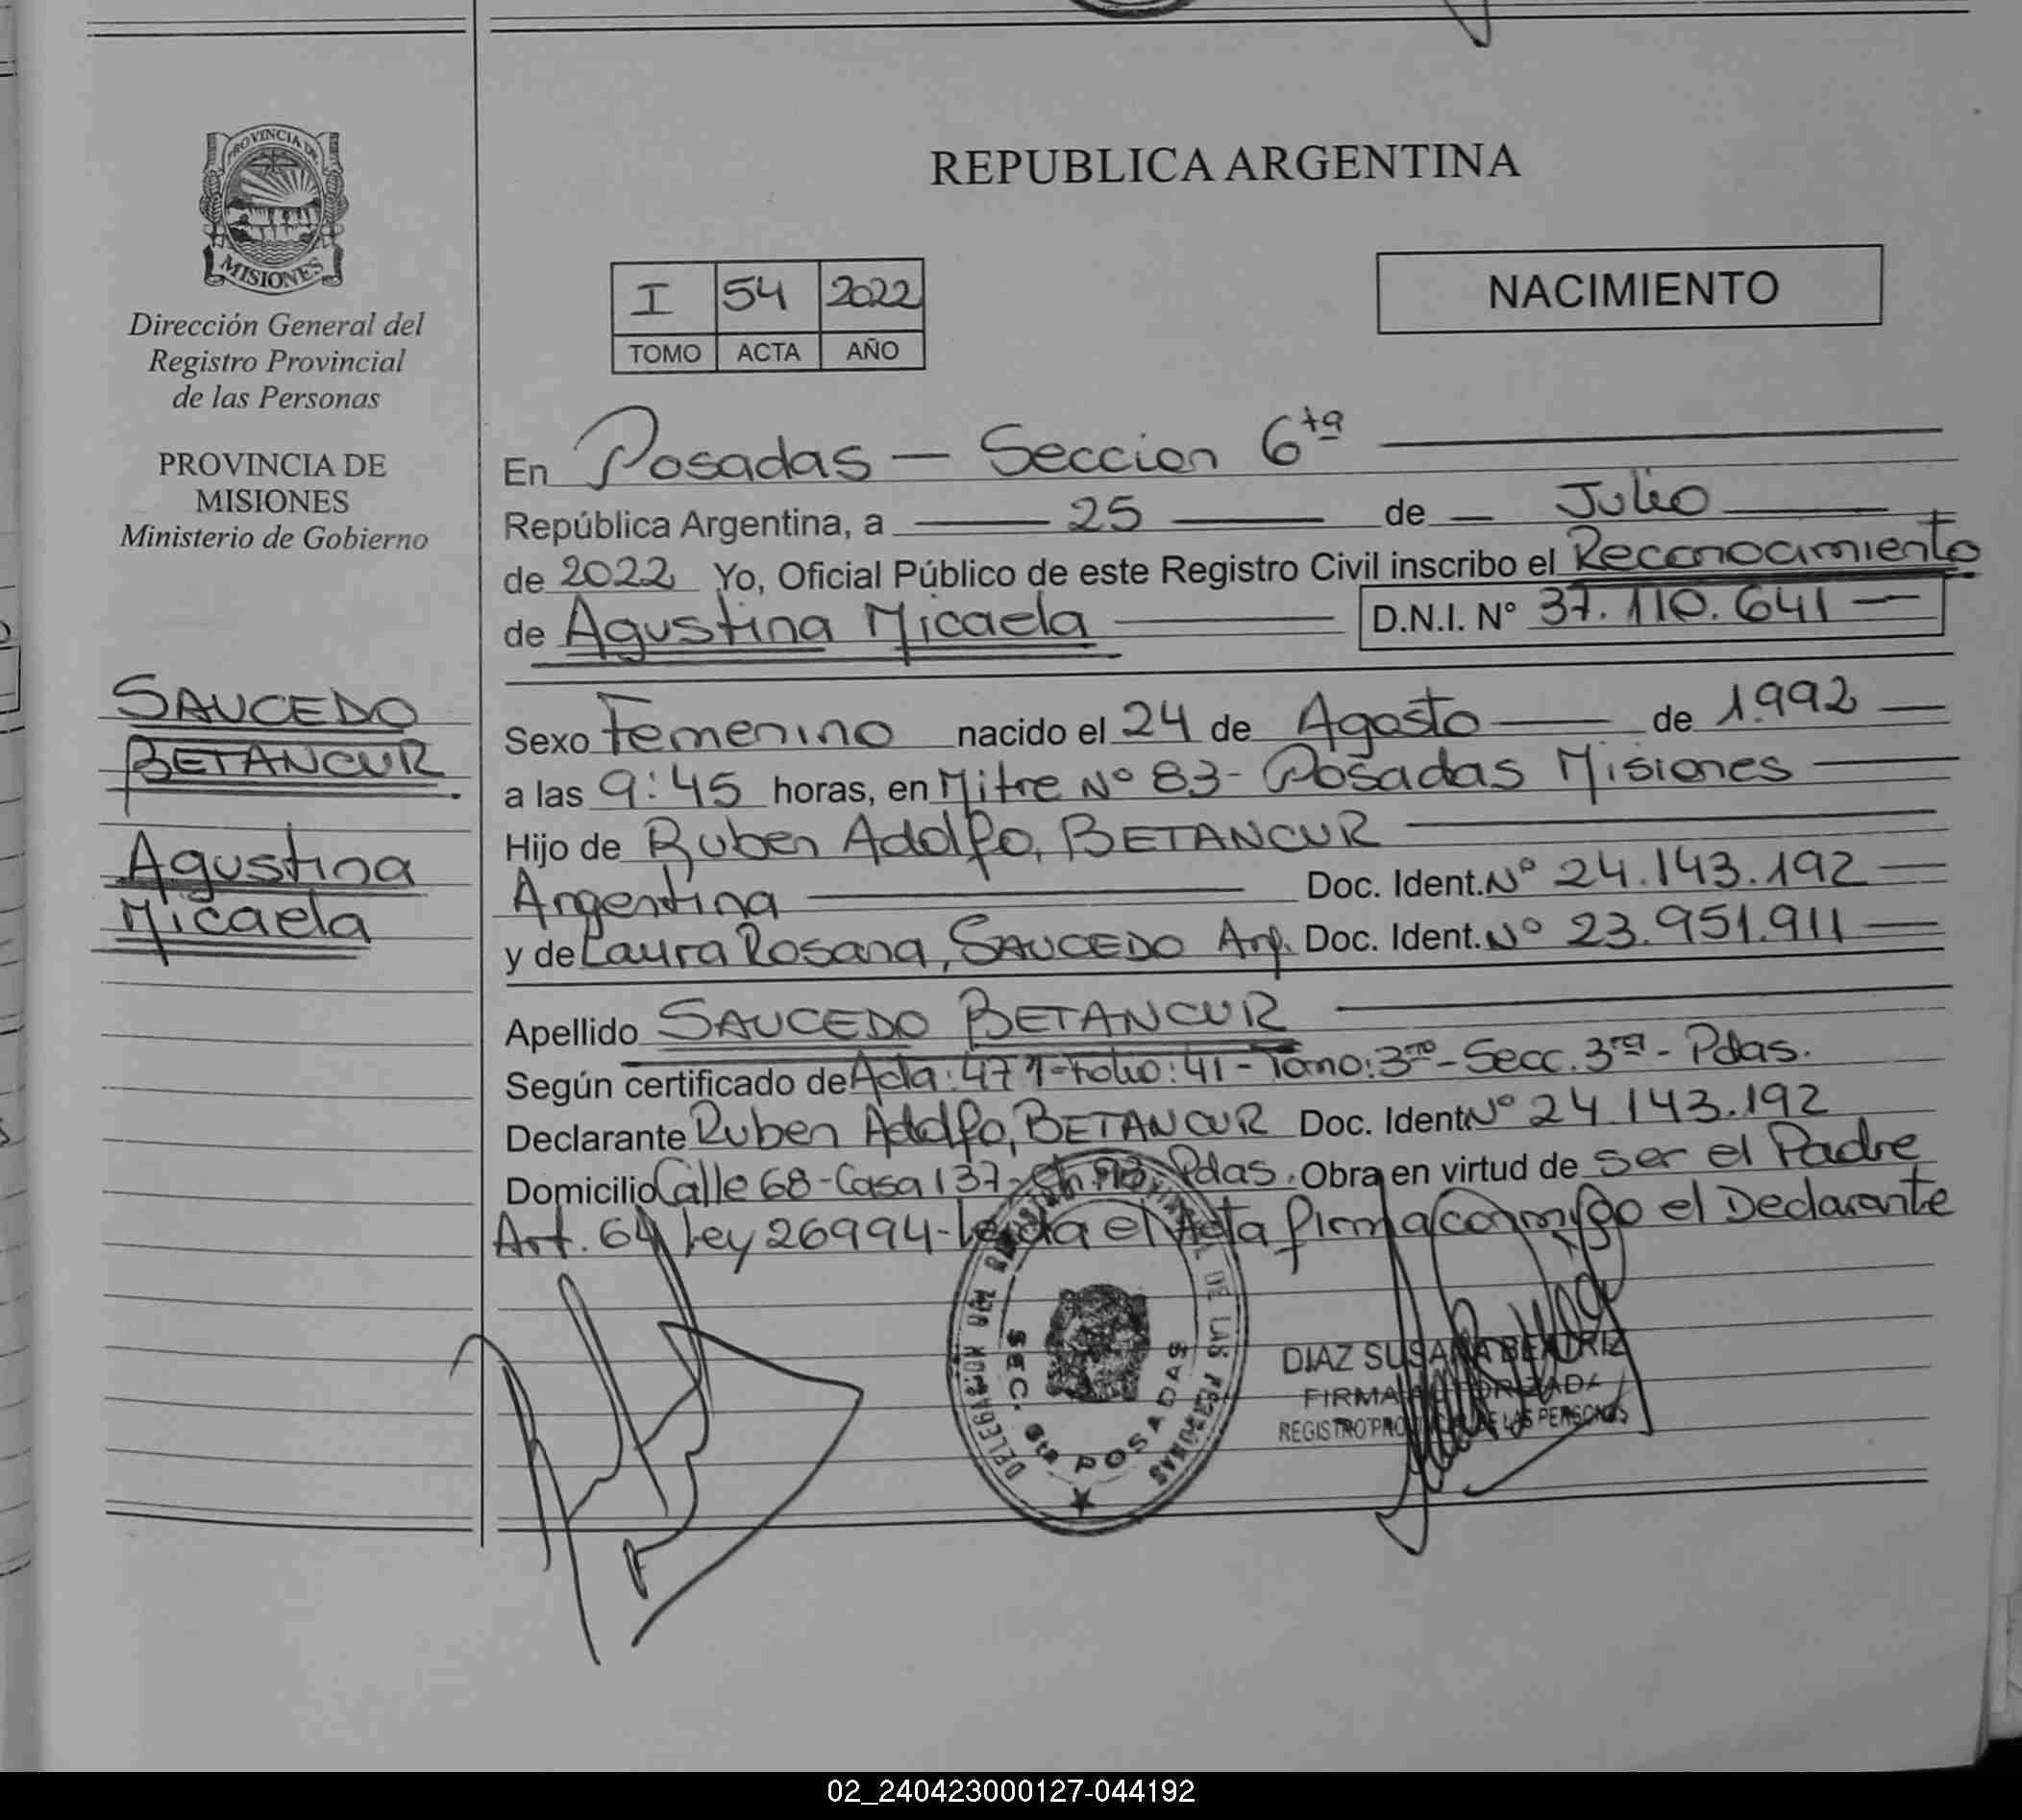 PROVINCIA DE
MISIONES
Dirección General del
Registro Provincial
de las Personas
PROVINCIA DE
MISIONES
Ministerio de Gobierno
SAUCEDO
BETANCUR
Agustina
Micaela
REPUBLICA ARGENTINA
I 54 2022
TOMO ACTA AÑO
NACIMIENTO
En Posadas - Seccion 6ta
República Argentina, a 25 de Julio
de 2022 Yo, Oficial Público de este Registro Civil inscribo el Reconocimiento
de Agustina Micaela D.N.I. N° 37.110.641
Sexo Femenino nacido el 24 de Agosto de 1.992
a las 9:45 horas, en Mitre N° 83 - Posadas Misiones
Hijo de Ruben Adolfo, BETANCUR
Argentina Doc. Ident. N° 24.143.192
y de Laura Rosana, SAUCEDO Arg. Doc. Ident. N° 23.951.911
Apellido SAUCEDO BETANCUR
Según certificado de Acta: 471 - Folio: 41 - Tomo: 3ro - Secc. 3ra - Pdas.
Declarante Ruben Adolfo, BETANCUR Doc. Ident. N° 24.143.192
Domicilio Calle 68 - Casa 137 - Pdas. Obra en virtud de ser el Padre
Art. 64 Ley 26994 - Leida el Acta firma conmigo el Declarante
DELEGACION DE LAS PERSONAS
SEC. 6ta POSADAS
DIAZ SUSANA BEATRIZ
FIRMA AUTORIZADA
REGISTRO PROVINCIAL DE LAS PERSONAS
02_240423000127-044192